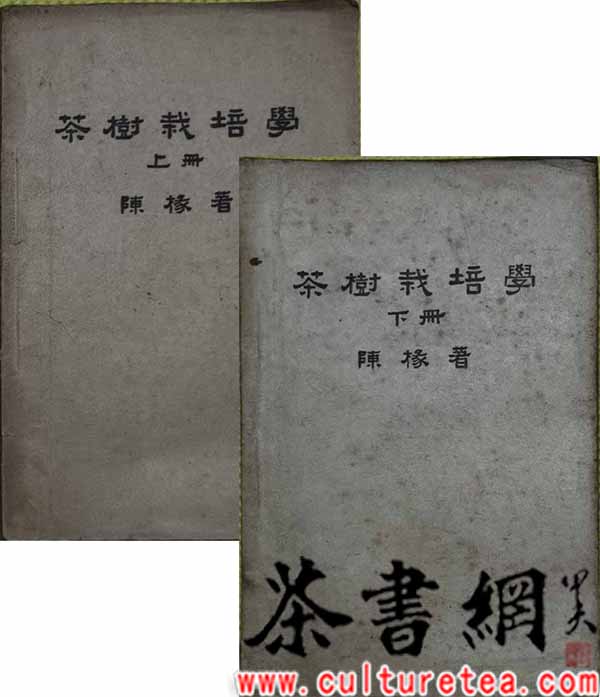 茶樹栽培學
上冊
陳椽著
茶樹栽培學
下冊
陳椽著
茶書網
www.culturetea.com